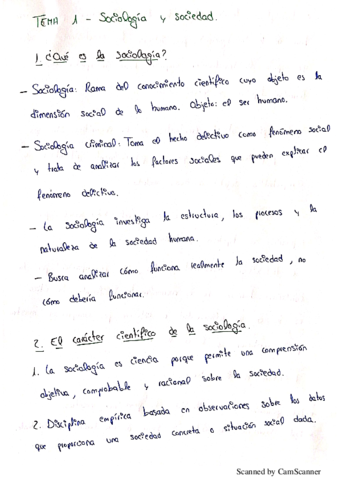 TEMA 1 - Sociología y sociedad.
1. ¿Qué es la sociología?
- Sociología: Rama del conocimiento científico cuyo objeto es la
dimensión social de lo humano. Objeto: el ser humano.
- Sociología criminal: Toma el hecho delictivo como fenómeno social
y trata de analizar los factores sociales que pueden explicar el
fenómeno delictivo.
- La sociología investiga la estructura, los procesos y la
naturaleza de la sociedad humana.
- Busca analizar cómo funciona realmente la sociedad, no
cómo debería funcionar.
2. El carácter científico de la sociología.
1. La sociología es ciencia porque permite una comprensión
objetiva, comprobable y racional sobre la sociedad.
2. Disciplina empírica basada en observaciones sobre los datos
que proporciona una sociedad concreta o situación social dada.
Scanned by CamScanner